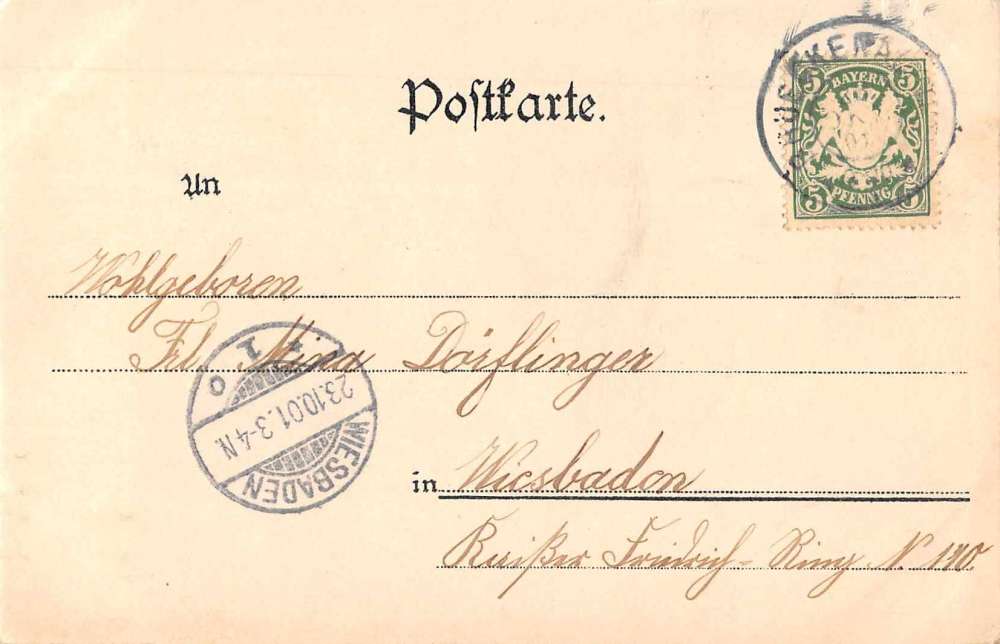 Postkarte.
5 BAYERN 5
5 PFENNIG 5
An
Wohlgeboren
Frl. Mina Dörflinger
* 1 o
23.10.01. 3-4 N.
WIESBADEN
in Wiesbaden
Kaißer Friedrich-Ring No 110.